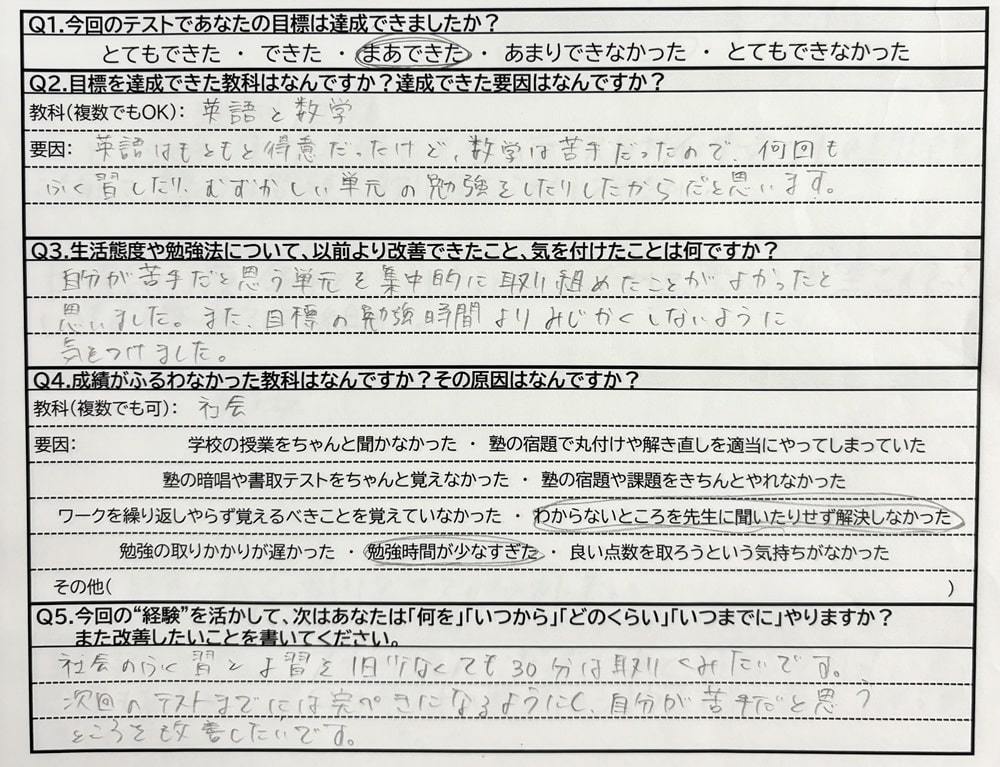 Q1.今回のテストであなたの目標は達成できましたか？
とてもできた ・ できた ・ まあできた ・ あまりできなかった ・ とてもできなかった
Q2.目標を達成できた教科はなんですか？達成できた要因はなんですか？
教科(複数でもOK)： 英語と数学
要因： 英語はもともと得意だったけど、数学は苦手だったので、何回も
ふく習したり、むずかしい単元の勉強をしたりしたからだと思います。
Q3.生活態度や勉強法について、以前より改善できたこと、気を付けたことは何ですか？
自分が苦手だと思う単元を集中的に取り組めたことがよかったと
思いました。また、目標の勉強時間よりみじかくしないように
気をつけました。
Q4.成績がふるわなかった教科はなんですか？その原因はなんですか？
教科(複数でも可)： 社会
要因： 学校の授業をちゃんと聞かなかった ・ 塾の宿題で丸付けや解き直しを適当にやってしまっていた
塾の暗唱や書取テストをちゃんと覚えなかった ・ 塾の宿題や課題をきちんとやれなかった
ワークを繰り返しやらず覚えるべきことを覚えていなかった ・ わからないところを先生に聞いたりせず解決しなかった
勉強の取りかかりが遅かった ・ 勉強時間が少なすぎた ・ 良い点数を取ろうという気持ちがなかった
その他( )
Q5.今回の“経験”を活かして、次はあなたは「何を」「いつから」「どのくらい」「いつまでに」やりますか？
また改善したいことを書いてください。
社会のふく習と予習を1日少なくても30分は取りくみたいです。
次回のテストまでには完ぺきになるようにし、自分が苦手だと思う
ところを改善したいです。